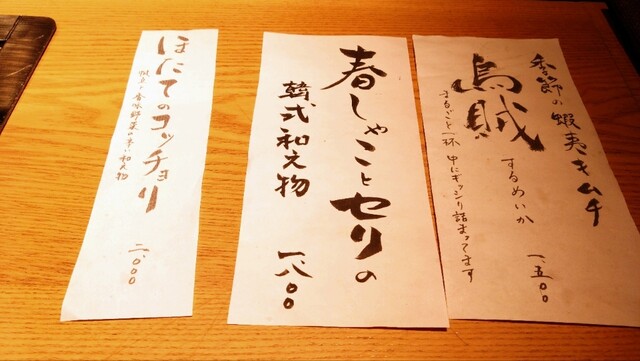 季節の蝦夷キムチ
烏賊
するめいか
まるごと一杯 中にギッシリ詰まってます
一、五〇〇
春しゃことセリの
韓式和え物
一、八〇〇
ほたてのコッチョリ
帆立と香味野菜の辛い和え物
二、〇〇〇